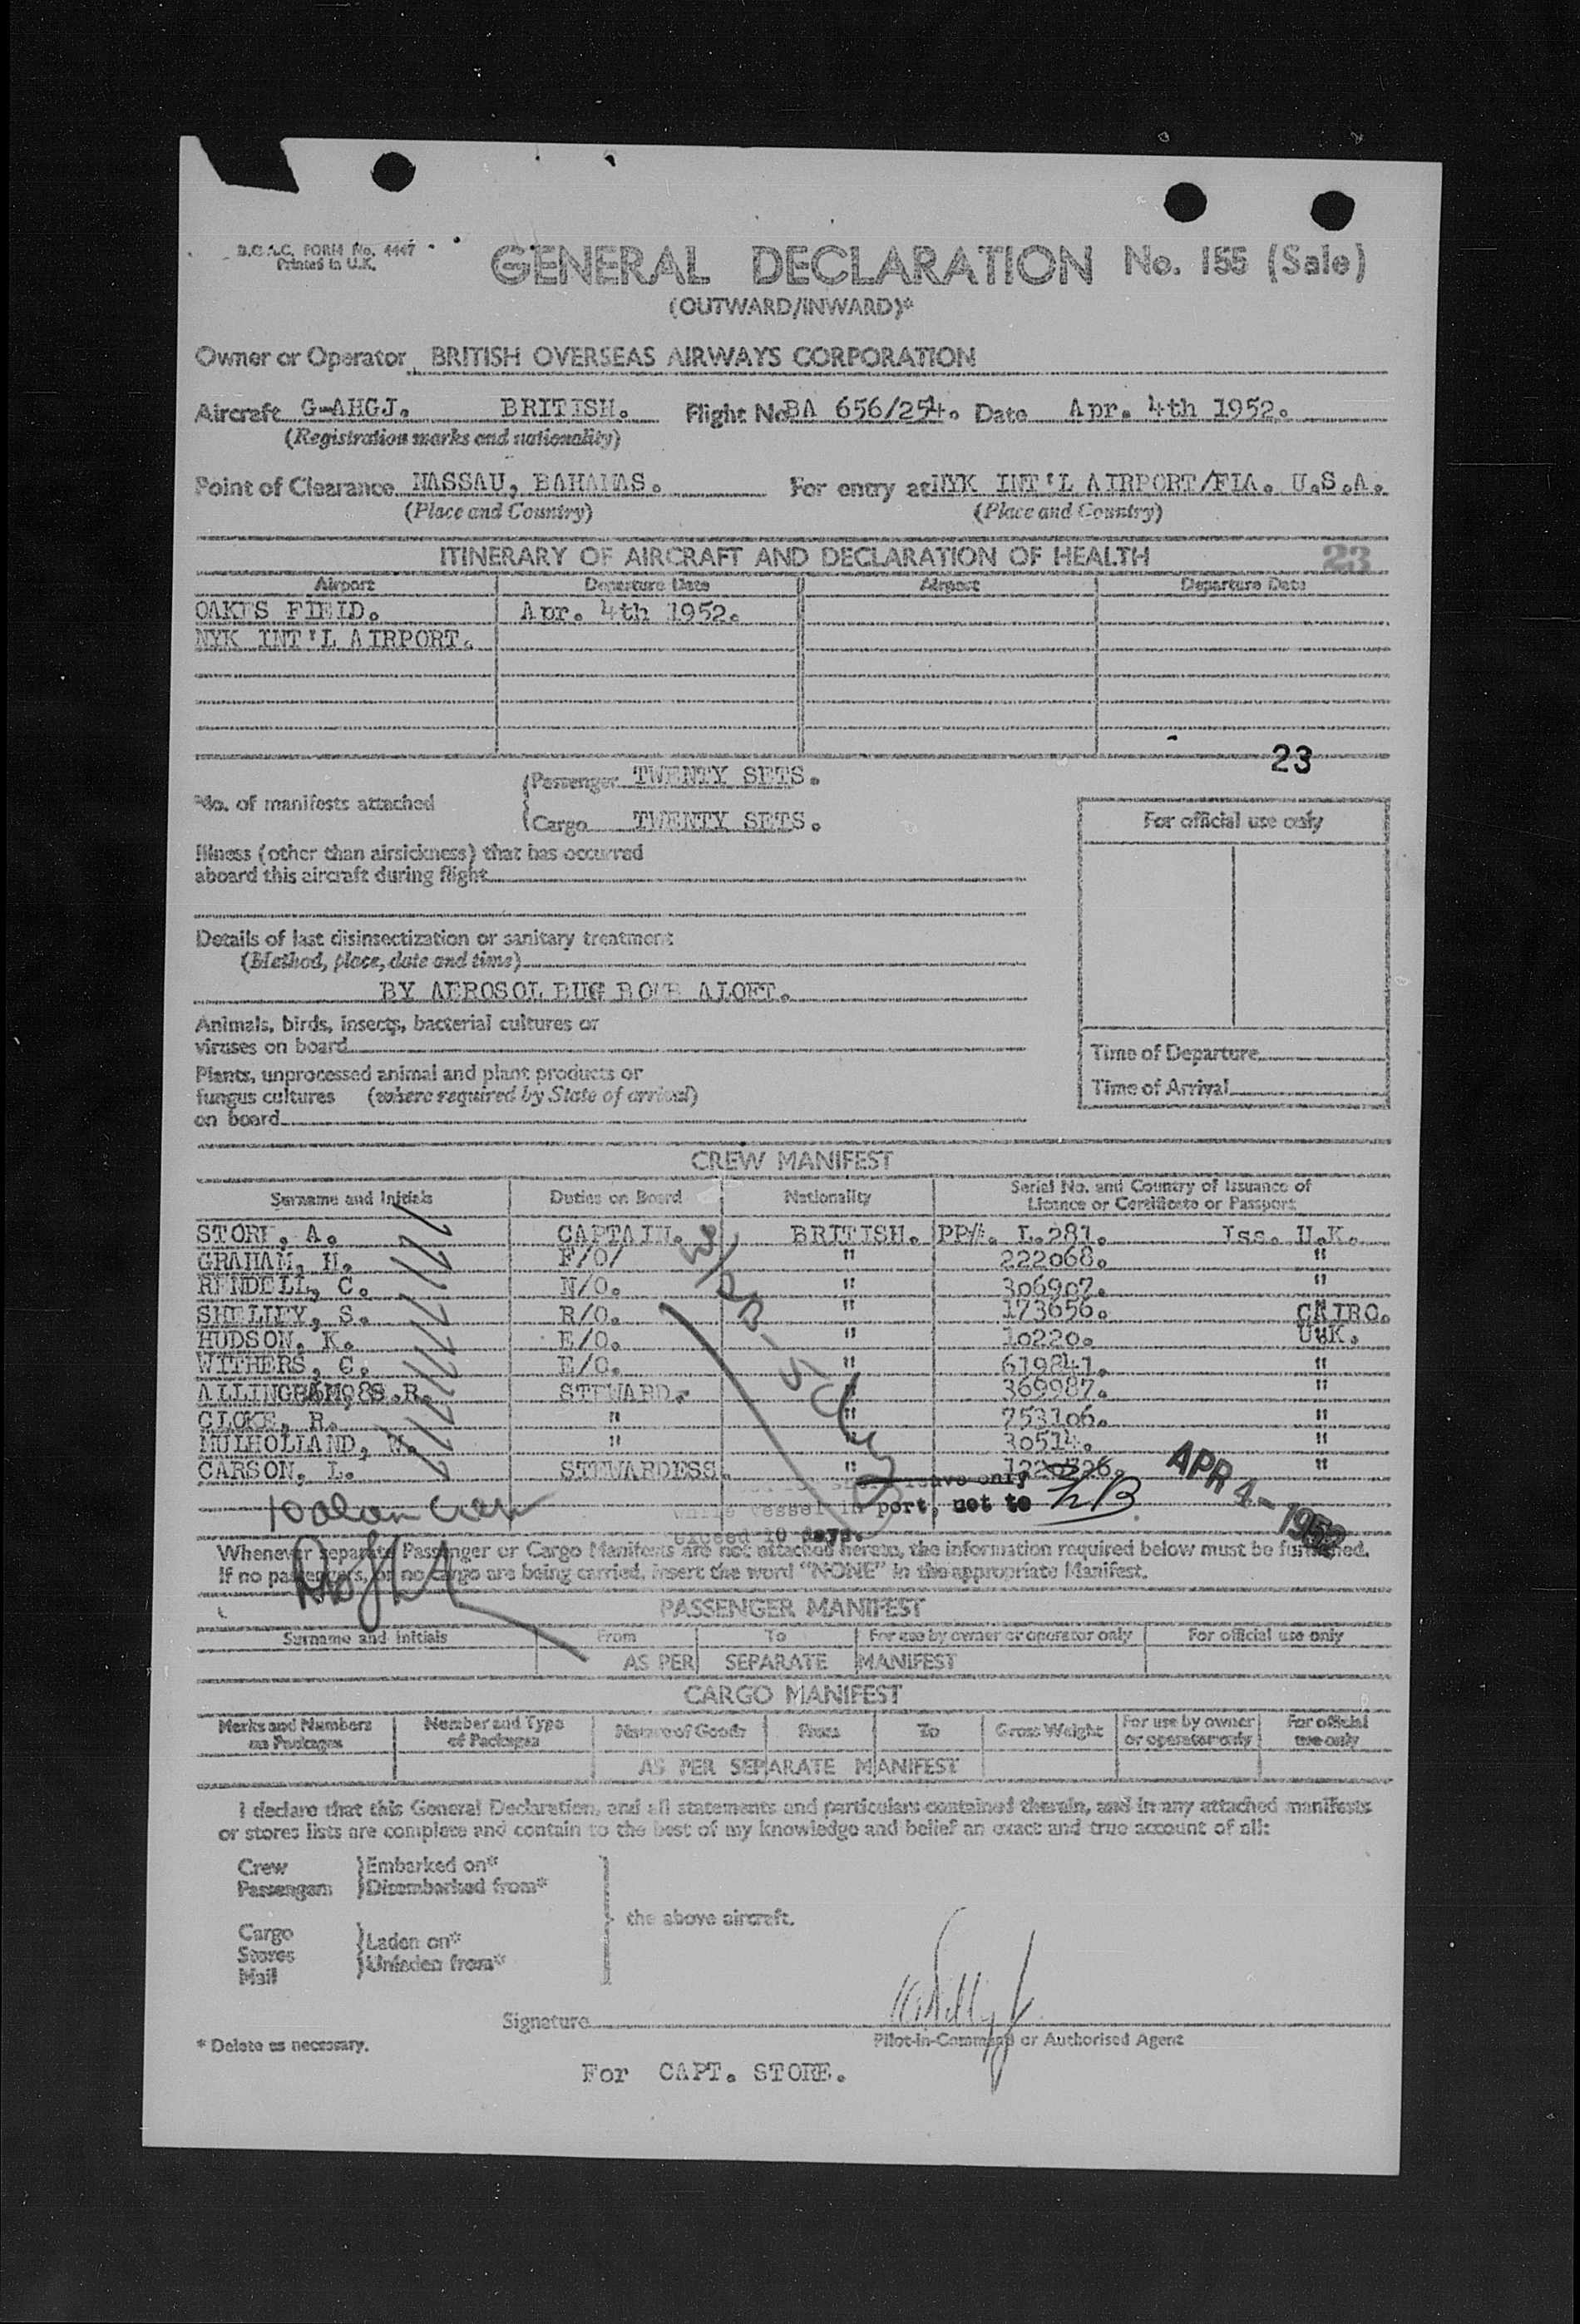 B.O.A.C. FORM No. 4447
Printed in U.K.
GENERAL DECLARATION No. 155 (Sale)
(OUTWARD/INWARD)*
Owner or Operator BRITISH OVERSEAS AIRWAYS CORPORATION
Aircraft G-AHGJ. BRITISH. Flight No. BA 656/254. Date Apr. 4th 1952.
(Registration marks and nationality)
Point of Clearance NASSAU, BAHAMAS. For entry at NYK INT'L AIRPORT/FIA. U.S.A.
(Place and Country) (Place and Country)
ITINERARY OF AIRCRAFT AND DECLARATION OF HEALTH 23
Airport Departure Date Airport Departure Date
OAKES FIELD. Apr. 4th 1952.
NYK INT'L AIRPORT.
23
No. of manifests attached
Passenger TWENTY SETS.
Cargo TWENTY SETS.
For official use only
Illness (other than airsickness) that has occurred
aboard this aircraft during flight
Details of last disinsectization or sanitary treatment
(Method, place, date and time)
BY AEROSOL BUG BOMB ALOFT.
Animals, birds, insects, bacterial cultures or
viruses on board
Time of Departure
Plants, unprocessed animal and plant products or
fungus cultures (where required by State of arrival)
Time of Arrival
on board
CREW MANIFEST
Surname and Initials Duties on Board Nationality Serial No. and Country of Issuance of
Licence or Certificate or Passport
STORE, A. CAPTAIN. BRITISH. PP#. L.281. Iss. U.K.
GRAHAM, H. F/O/ " 222068. "
RENDELL, C. N/O. " 306907. "
SHELLEY, S. R/O. " 173656. CAIRO.
HUDSON, K. E/O. " 10220. U.K.
WITHERS, C. E/O. " 619841. "
ALLINGHAM, S.R. STEWARD. " 369987. "
CLOKE, R. " " 753106. "
MULHOLLAND, W. " " 30514. "
CARSON, L. STEWARDESS. " "
APR 4 - 1952
leave only
while vessel in port, not to
exceed 10 days.
Whenever separate Passenger or Cargo Manifests are not attached hereto, the information required below must be furnished.
If no passengers, or no cargo are being carried, insert the word "NONE" in the appropriate Manifest.
PASSENGER MANIFEST
Surname and Initials From To For use by owner or operator only For official use only
AS PER SEPARATE MANIFEST
CARGO MANIFEST
Marks and Numbers on Packages Number and Type of Packages Nature of Goods From To Gross Weight For use by owner or operator only For official use only
AS PER SEPARATE MANIFEST
I declare that this General Declaration, and all statements and particulars contained therein, and in any attached manifests
or stores lists are complete and contain to the best of my knowledge and belief an exact and true account of all:
Crew Embarked on*
Passengers Disembarked from*
the above aircraft.
Cargo
Stores Laden on*
Mail Unladen from*
Signature
* Delete as necessary. Pilot-in-Command or Authorised Agent
For CAPT. STORE.